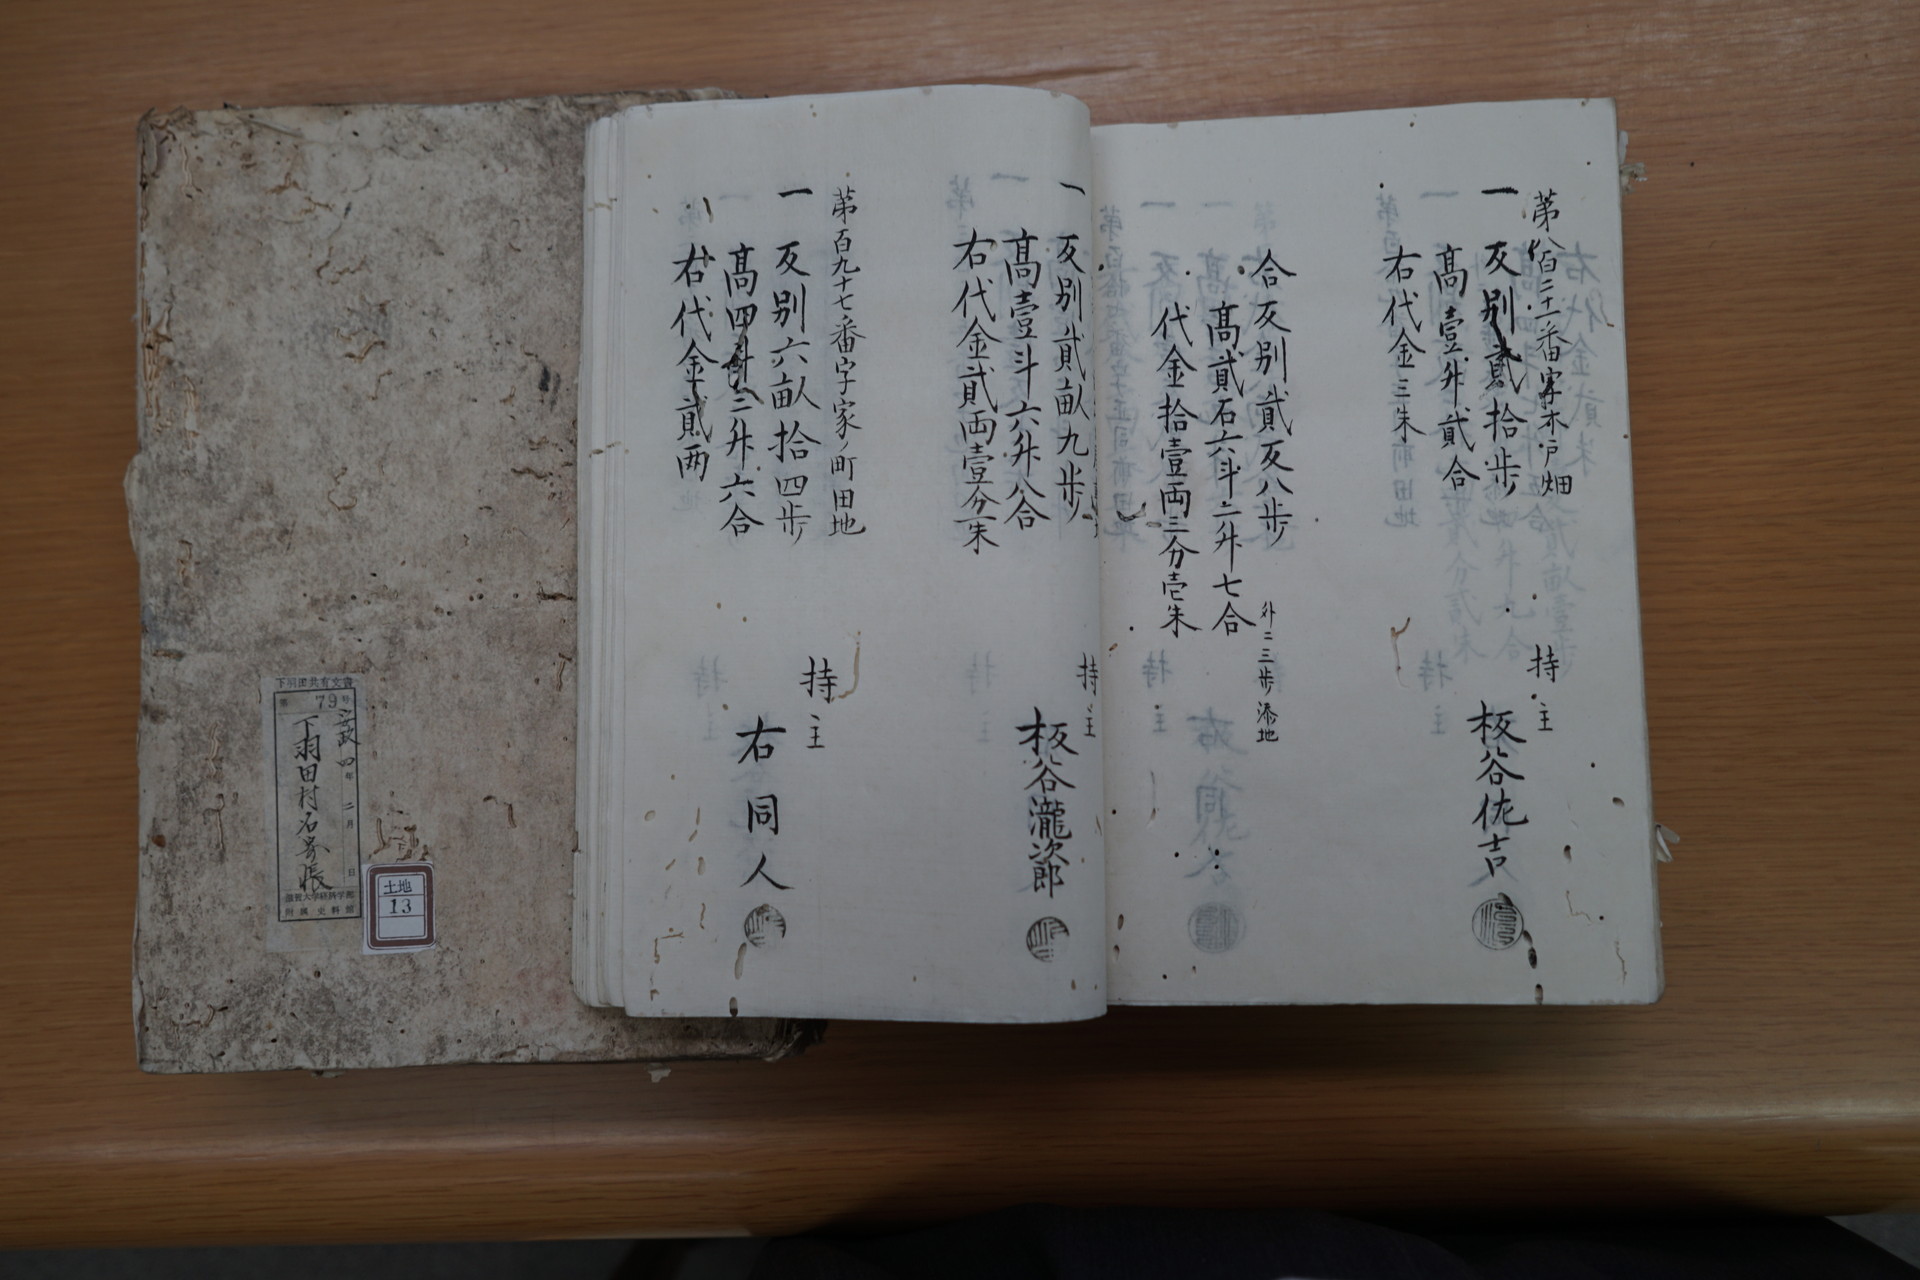 第八百二十一番字木戸畑
一 反別貳拾歩
高壹升貳合
右代金三朱
持主
板谷佐吉
合反別貳反八歩
外ニ三歩添地
高貳石六斗二升七合
代金拾壹両三分壱朱
一 反別貳畝九歩
高壹斗六升八合
右代金貳両壹分一朱
持主
板谷瀧次郎
第百九十七番字家ノ町田地
一 反別六畝拾四歩
高四斗二升六合
右代金貳両
持主
右同人
下羽田共有文書
第79号
安政四年二月日
下羽田村名寄帳
滋賀大学経済学部
附属史料館
土地
13